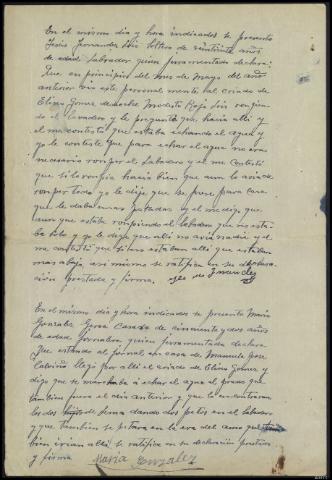 En el mismo dia y hora indicados se presento
Jesus Fernandez Luis soltero de veintisiete años
de edad labrador quien juramentado declara:
Que en principios del mes de Mayo del año
anterior vio este personalmente al criado de
Eliseo Gomez de noche Modesto Rojo Luis rompiendo
el lavadero y le preguntó que hacia alli y
el me contesto que estaba echando el agua y
yo le conteste que para echar el agua no era
necesario romper el labadero y el me contestó
que si lo rompia hacia bien que aun lo avia de
romper todo yo le dije que se fuese para casa
que le daban unas patadas y el me dijo que
aun que estaba rompiendo el labadero que no estaba
solo y yo le dije que alli no avia nadie y el
me contestó que si no estaban alli que estaban
mas abajo, asi mismo se ratifica en su declaracion
prestada y firma.
En el mismo dia y hora indicados se presento Maria
Gonzalez Casada de cincuenta y dos años
de edad Jornalera quien juramentada declara
Que estando al jornal en casa de Manuel Jose
llegó por alli el criado de Eliseo Gomez y
dijo que se marchaba á echar el agua al prado que
tambien fuera el dia anterior y que la encontraron
los dos dando dos palos en el labadero
y que tambien se en la era del amo que
bien irian alli se ratifica en su declaracion prestada
y firma
Maria Gonzalez